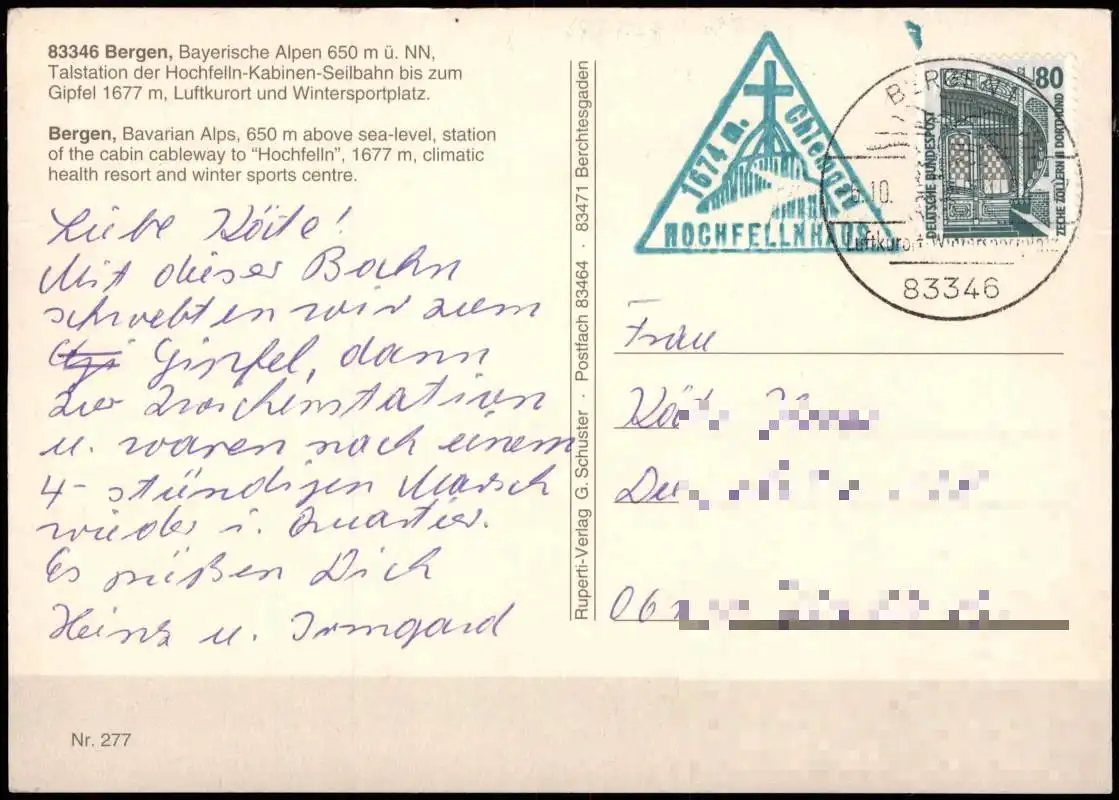 83346 Bergen, Bayerische Alpen 650 m ü. NN,
Talstation der Hochfelln-Kabinen-Seilbahn bis zum
Gipfel 1677 m, Luftkurort und Wintersportplatz.
Bergen, Bavarian Alps, 650 m above sea-level, station
of the cabin cableway to “Hochfelln”, 1677 m, climatic
health resort and winter sports centre.
Liebe Käte!
Mit dieser Bahn
schwebten wir zum
Gipfel, dann
zur Zwischenstation
u. waren nach einem
4-stündigen Marsch
wieder i. Quartier.
Es grüßen Dich
Heinz u. Irmgard
Nr. 277
Ruperti-Verlag G. Schuster · Postfach 83464 · 83471 Berchtesgaden
1674 m.
Chiemgau
HOCHFELLNHAUS
BERGEN
10.
Luftkurort Wintersportplatz
83346
80
DEUTSCHE BUNDESPOST
ZECHE ZOLLERN II DORTMUND
Frau
06